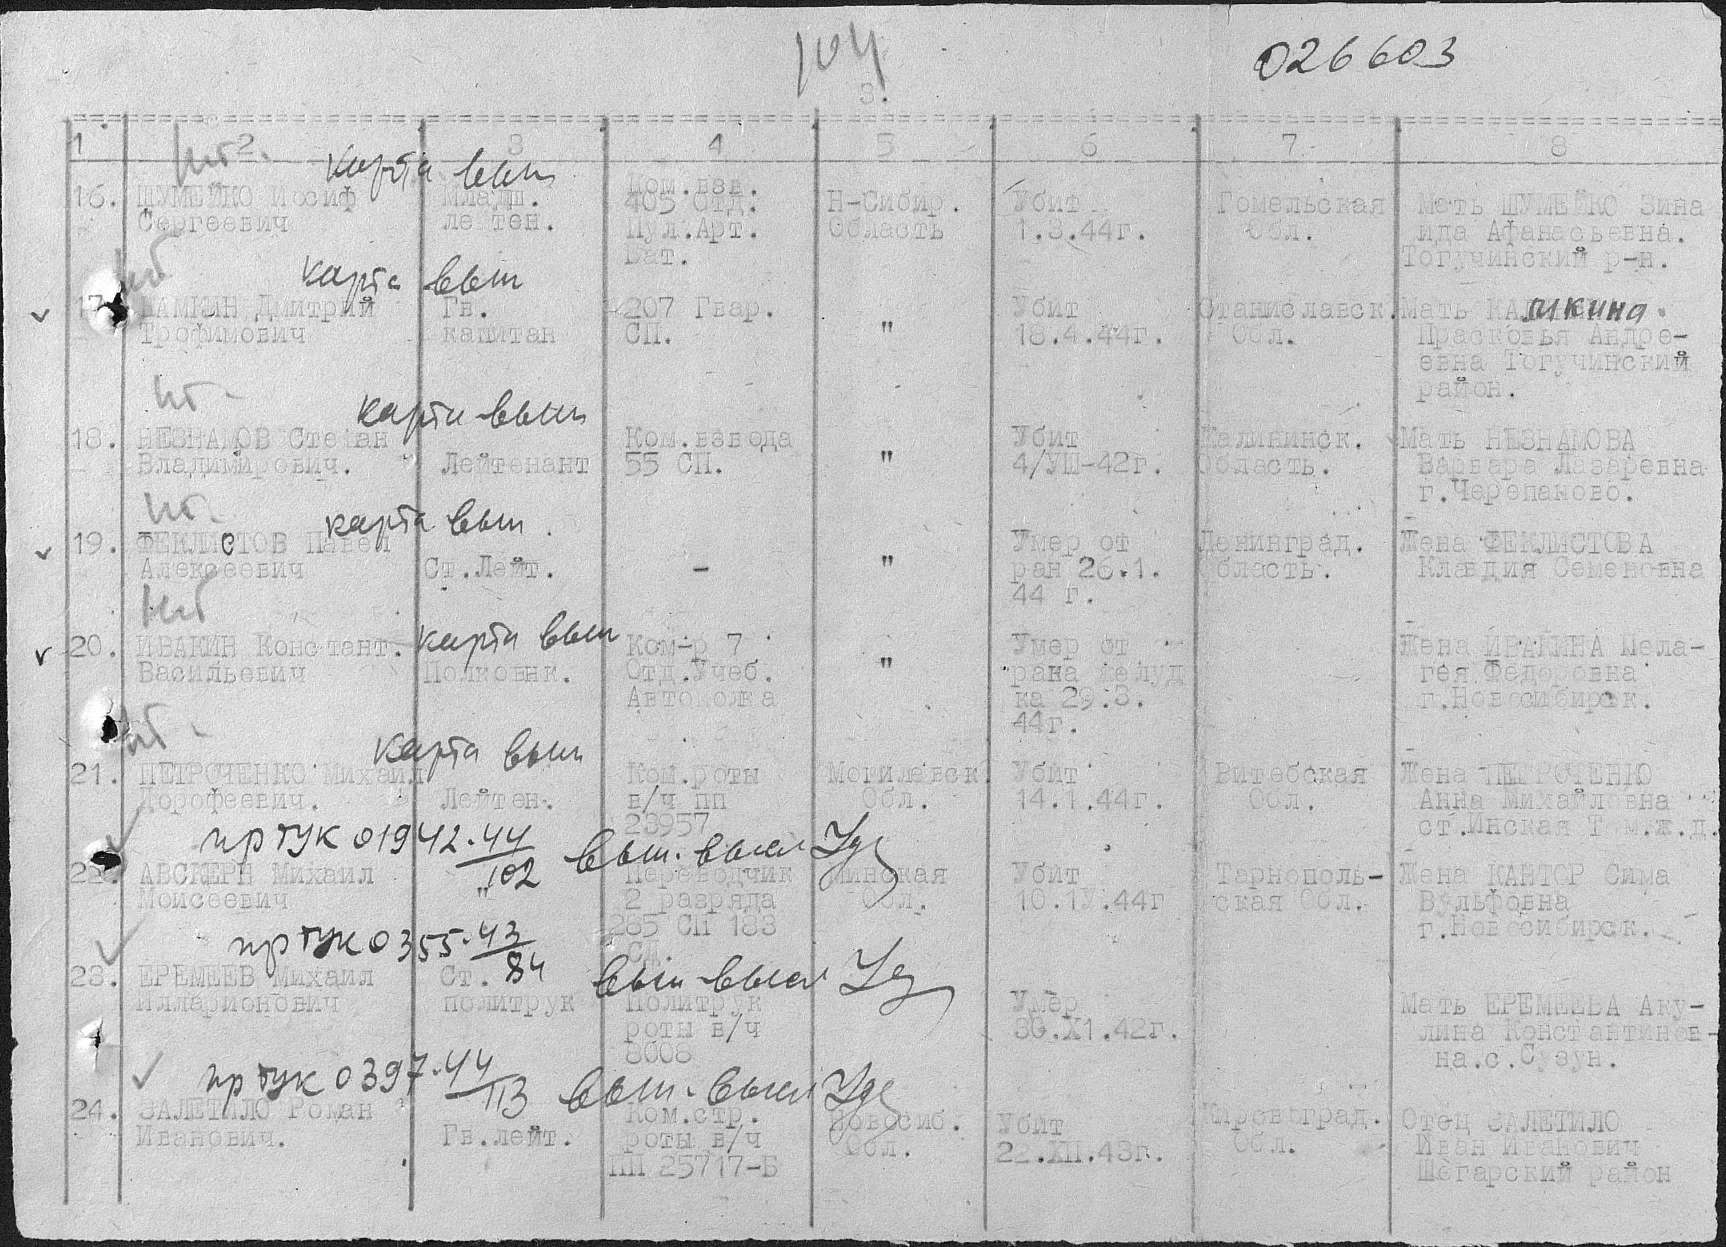 104
026603
3.
1 2 3 4 5 6 7 8
карта выш
16. ШУМЕЙКО Иосиф Младш. Ком.взв. Н-Сибир. Убит Гомельская Мать ШУМЕЙКО Зина
Сергеевич лейтен. 405 отд. Область 1.3.44г. Обл. ида Афанасьевна.
Пул.Арт. Тогучинский р-н.
Бат.
карта выш
17. Дмитрий Гв. 207 Гвар. " Убит Станиславск. Мать
Трофимович капитан СП. 18.4.44г. Обл. Прасковья Андре-
евна Тогучинский
район.
карта выш
18. НЕЗНАМОВ Степан Ком.взвода Убит Калининск. Мать НЕЗНАМОВА
Владимирович. Лейтенант 55 СП. " 4/УШ-42г. Область. Варвара Лазаревна
г.Черепаново.
карта выш
19. ФЕКЛИСТОВ Павел Умер от Ленинград. Жена ФЕКЛИСТОВА
Алексеевич Ст.Лейт. - " ран 26.1. бласть. Клавдия Семеновна
44 г.
карта выш
20. ИВАКИН Констант. Ком-р 7 Умер от Жена ИВАКИНА Пела-
Васильевич Полковнк. Отд.Учеб. " рана желуд гея Федоровна
Автополка ка 29.3. г.Новосибирск.
44г.
карта выш
21. ПЕТРОЧЕНКО Михаил Ком.роты Могилевск. Убит Витебская Жена
Дорофеевич. Лейтен. в/ч пп Обл. 14.1.44г. Обл. Анна Михайловна
23957 ст.Инская Том.ж.д.
пр ГУК 01942-44/102 выш. выкл
22. Михаил " Переводчик Минская Убит Тарнополь- Жена КАНТОР Сима
Моисеевич 2 разряда Обл. 10.1У.44г ская Обл. Вульфовна
285 СП 183 г.Новосибирск.
СД.
пр ГУК 0355-43/84 выш выкл
23. ЕРЕМЕЕВ Михаил Ст. Политрук Умер Мать ЕРЕМЕЕВА Аку-
Илларионович политрук роты в/ч 30.Х1.42г. лина Константинов-
8008 на.с.Сузун.
пр ГУК 0397-44/113 выш. выкл
24. ЗАЛЕТИЛО Роман Ком.стр. Новосиб. Убит Кировоград. Отец ЗАЛЕТИЛО
Иванович. Гв.лейт. роты в/ч Обл. 22.ХП.43г. Обл. Иван Иванович
ПП 25717-Б Шегарский район